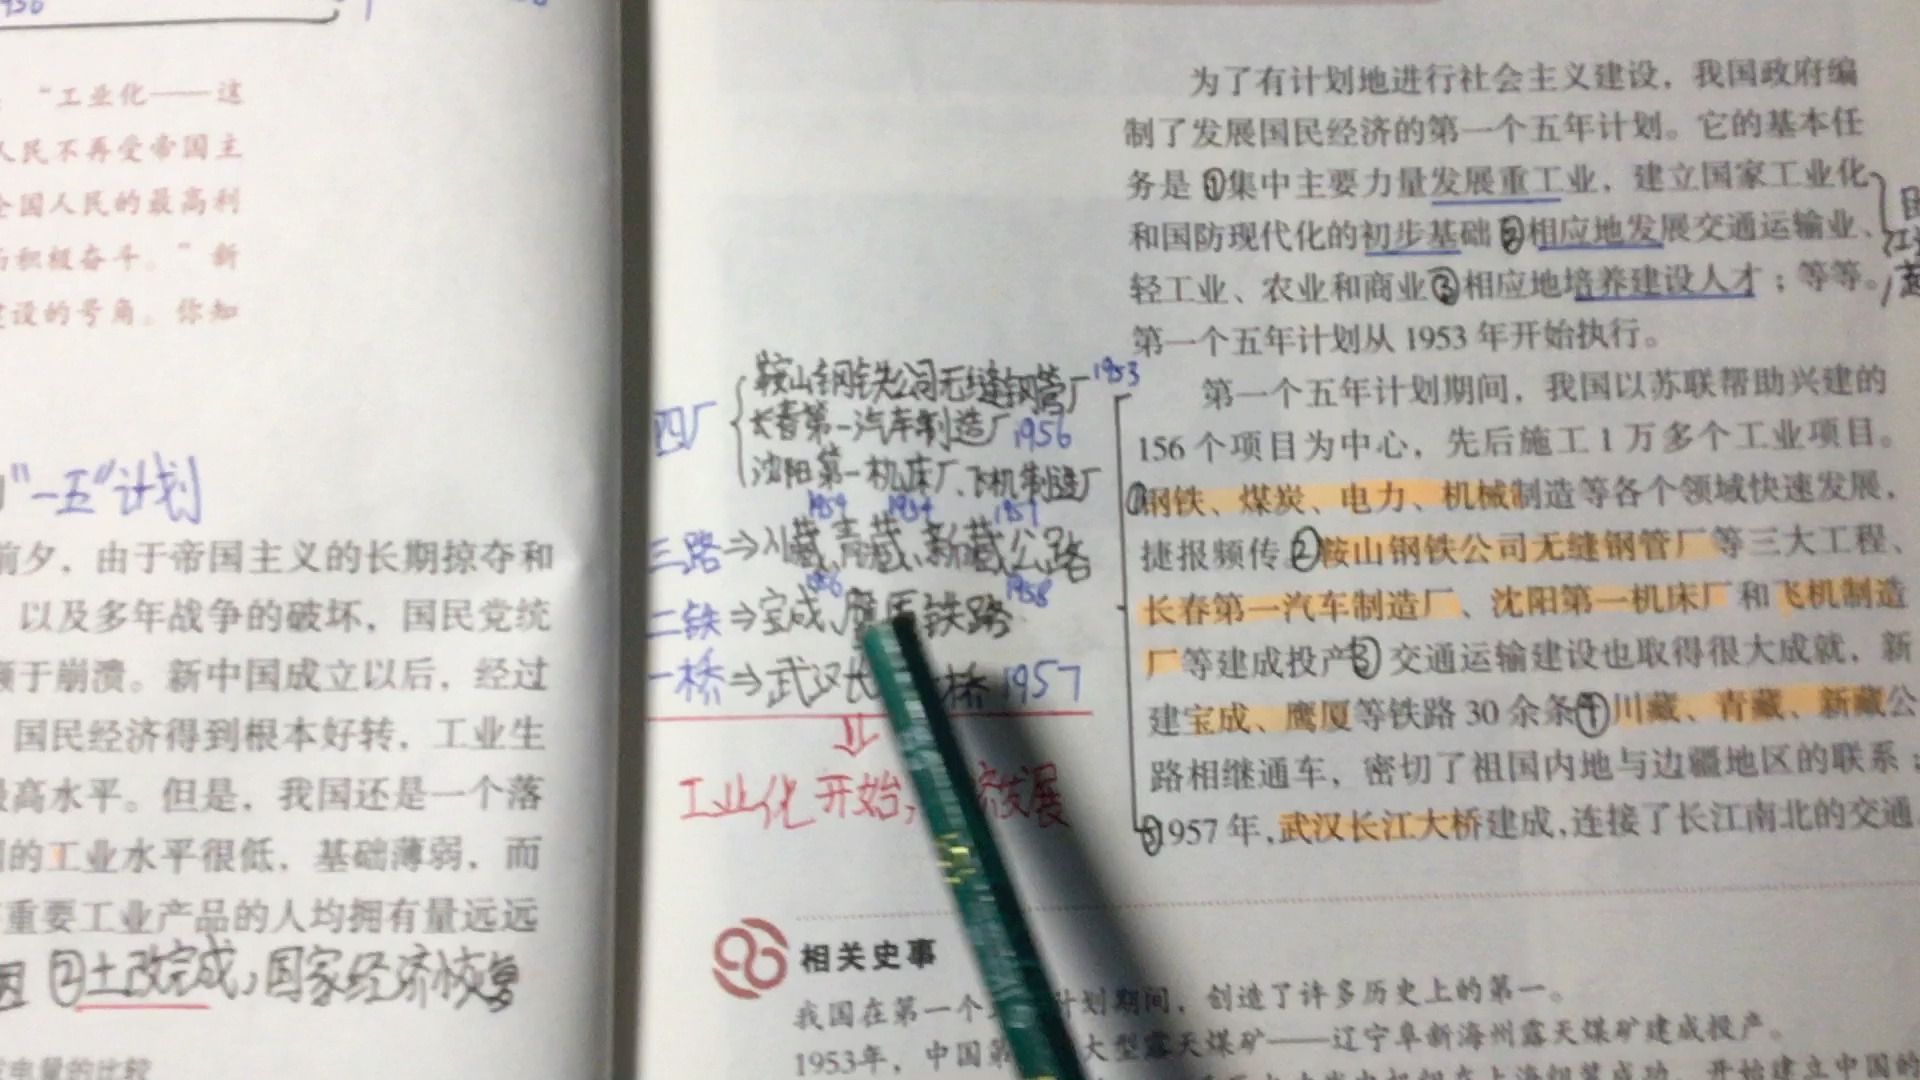 "工业化——这
人民不再受帝国主
全国人民的最高利
积极奋斗。"新
建设的号角。你知
"一五"计划
前夕，由于帝国主义的长期掠夺和
以及多年战争的破坏，国民党统
于崩溃。新中国成立以后，经过
国民经济得到根本好转，工业生
最高水平。但是，我国还是一个落
的工业水平很低，基础薄弱，而
重要工业产品的人均拥有量远远
②土改完成，国家经济恢复
电量的比较
为了有计划地进行社会主义建设，我国政府编
制了发展国民经济的第一个五年计划。它的基本任
务是①集中主要力量发展重工业，建立国家工业化
和国防现代化的初步基础②相应地发展交通运输业、
轻工业、农业和商业③相应地培养建设人才；等等。
第一个五年计划从1953年开始执行。
四厂
鞍山钢铁公司无缝钢管厂 1953
长春第一汽车制造厂 1956
沈阳第一机床厂、飞机制造厂
1954 1954 1957
三路⇒川藏、青藏、新藏公路
1956 1958
二铁⇒宝成、鹰厦铁路
一桥⇒武汉长 桥 1957
工业化开始， 发展
第一个五年计划期间，我国以苏联帮助兴建的
156个项目为中心，先后施工1万多个工业项目。
①钢铁、煤炭、电力、机械制造等各个领域快速发展，
捷报频传②鞍山钢铁公司无缝钢管厂等三大工程、
长春第一汽车制造厂、沈阳第一机床厂和飞机制造
厂等建成投产③交通运输建设也取得很大成就，新
建宝成、鹰厦等铁路30余条④川藏、青藏、新藏公
路相继通车，密切了祖国内地与边疆地区的联系；
⑤957年，武汉长江大桥建成，连接了长江南北的交通
相关史事
我国在第一个 计划期间，创造了许多历史上的第一。
1953年，中国第 大型露天煤矿——辽宁阜新海州露天煤矿建成投产。